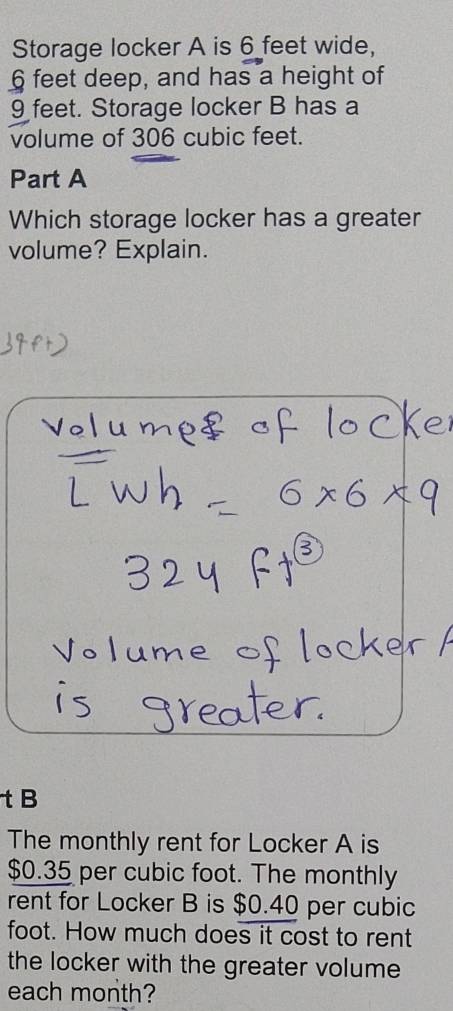 Storage locker A is 6 feet wide,
6 feet deep, and has a height of
9 feet. Storage locker B has a
volume of 306 cubic feet.
Part A
Which storage locker has a greater
volume? Explain.
Volume of locker
Lwh = 6×6×9
324 ft³
Volume of locker A
is greater.
t B
The monthly rent for Locker A is
$0.35 per cubic foot. The monthly
rent for Locker B is $0.40 per cubic
foot. How much does it cost to rent
the locker with the greater volume
each month?